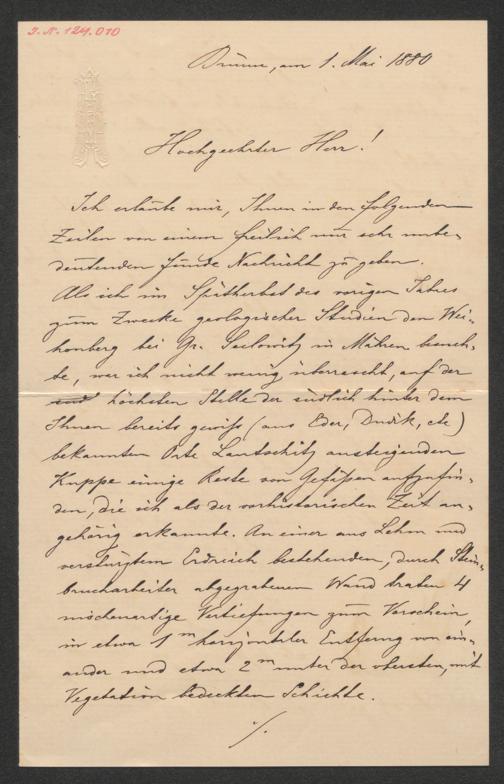 J. N. 124.010
Brünn, am 1. Mai 1880
Hochgeehrter Herr!
Ich erlaube mir, Ihnen in den folgenden
Zeilen von einem freilich nur sehr unbe-
deutenden Funde Nachricht zu geben.
Als ich im Spätherbst des vorigen Jahres
zum Zwecke geologischer Studien den Wei-
honberg bei Gr. Seelowitz in Mähren besuch-
te, war ich nicht wenig überrascht, auf der
höchsten Stelle der südlich hinter dem
Ihnen bereits gewiss (aus Eder, Dudik, etc)
bekannten Orte Lautschitz ansteigenden
Kuppe einige Reste von Gefäßen aufzufin-
den, die ich als der vorhistorischen Zeit an-
gehörig erkannte. An einer aus Lehm und
verstürztem Erdreich bestehenden, durch Stein-
brucharbeiter abgegrabenen Wand traten 4
nischenartige Vertiefungen zum Vorschein,
in etwa 1 m horizontaler Entfernung von ein-
ander und etwa 2 m unter der obersten, mit
Vegetation bedeckten Schichte.
./.